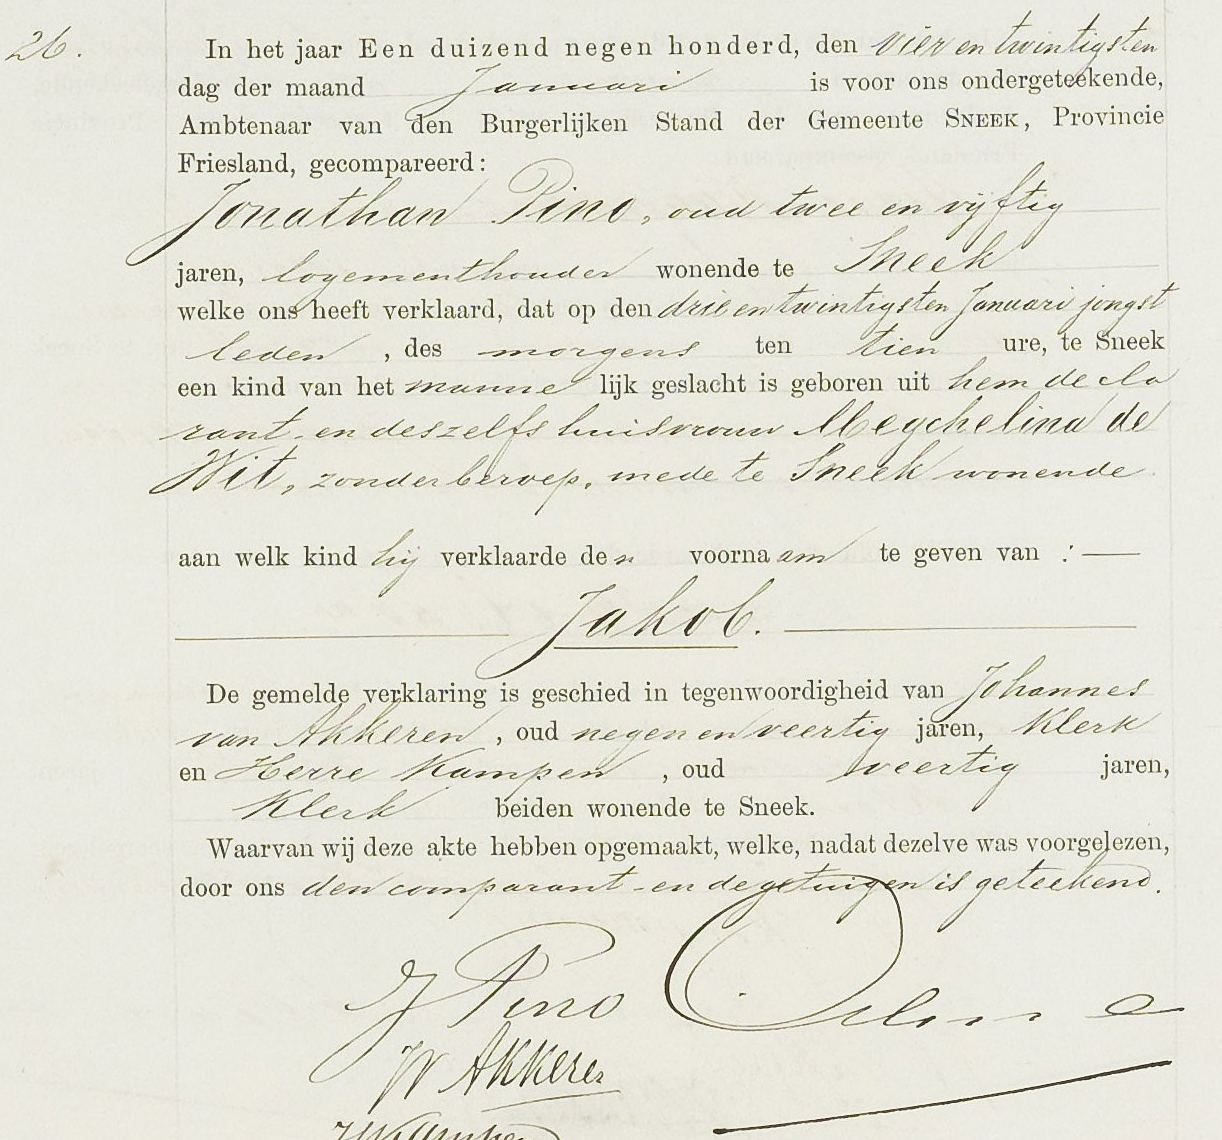 26.
In het jaar Een duizend negen honderd, den vier en twintigsten
dag der maand Januari is voor ons ondergeteekende,
Ambtenaar van den Burgerlijken Stand der Gemeente SNEEK, Provincie
Friesland, gecompareerd:
Jonathan Pino, oud twee en vijftig
jaren, logementhouder wonende te Sneek
welke ons heeft verklaard, dat op den drie en twintigsten Januari jongst
leden, des morgens ten tien ure, te Sneek
een kind van het manne lijk geslacht is geboren uit hem decla
rant en deszelfs huisvrouw Megchelina de
Wit, zonder beroep, mede te Sneek wonende
aan welk kind hij verklaarde den voornaam te geven van :—
Jakob.
De gemelde verklaring is geschied in tegenwoordigheid van Johannes
van Akkeren, oud negen en veertig jaren, Klerk
en Herre Kampen, oud veertig jaren,
Klerk beiden wonende te Sneek.
Waarvan wij deze akte hebben opgemaakt, welke, nadat dezelve was voorgelezen,
door ons den comparant en de getuigen is geteekend.
J Pino
JV Akkeren
HKampen